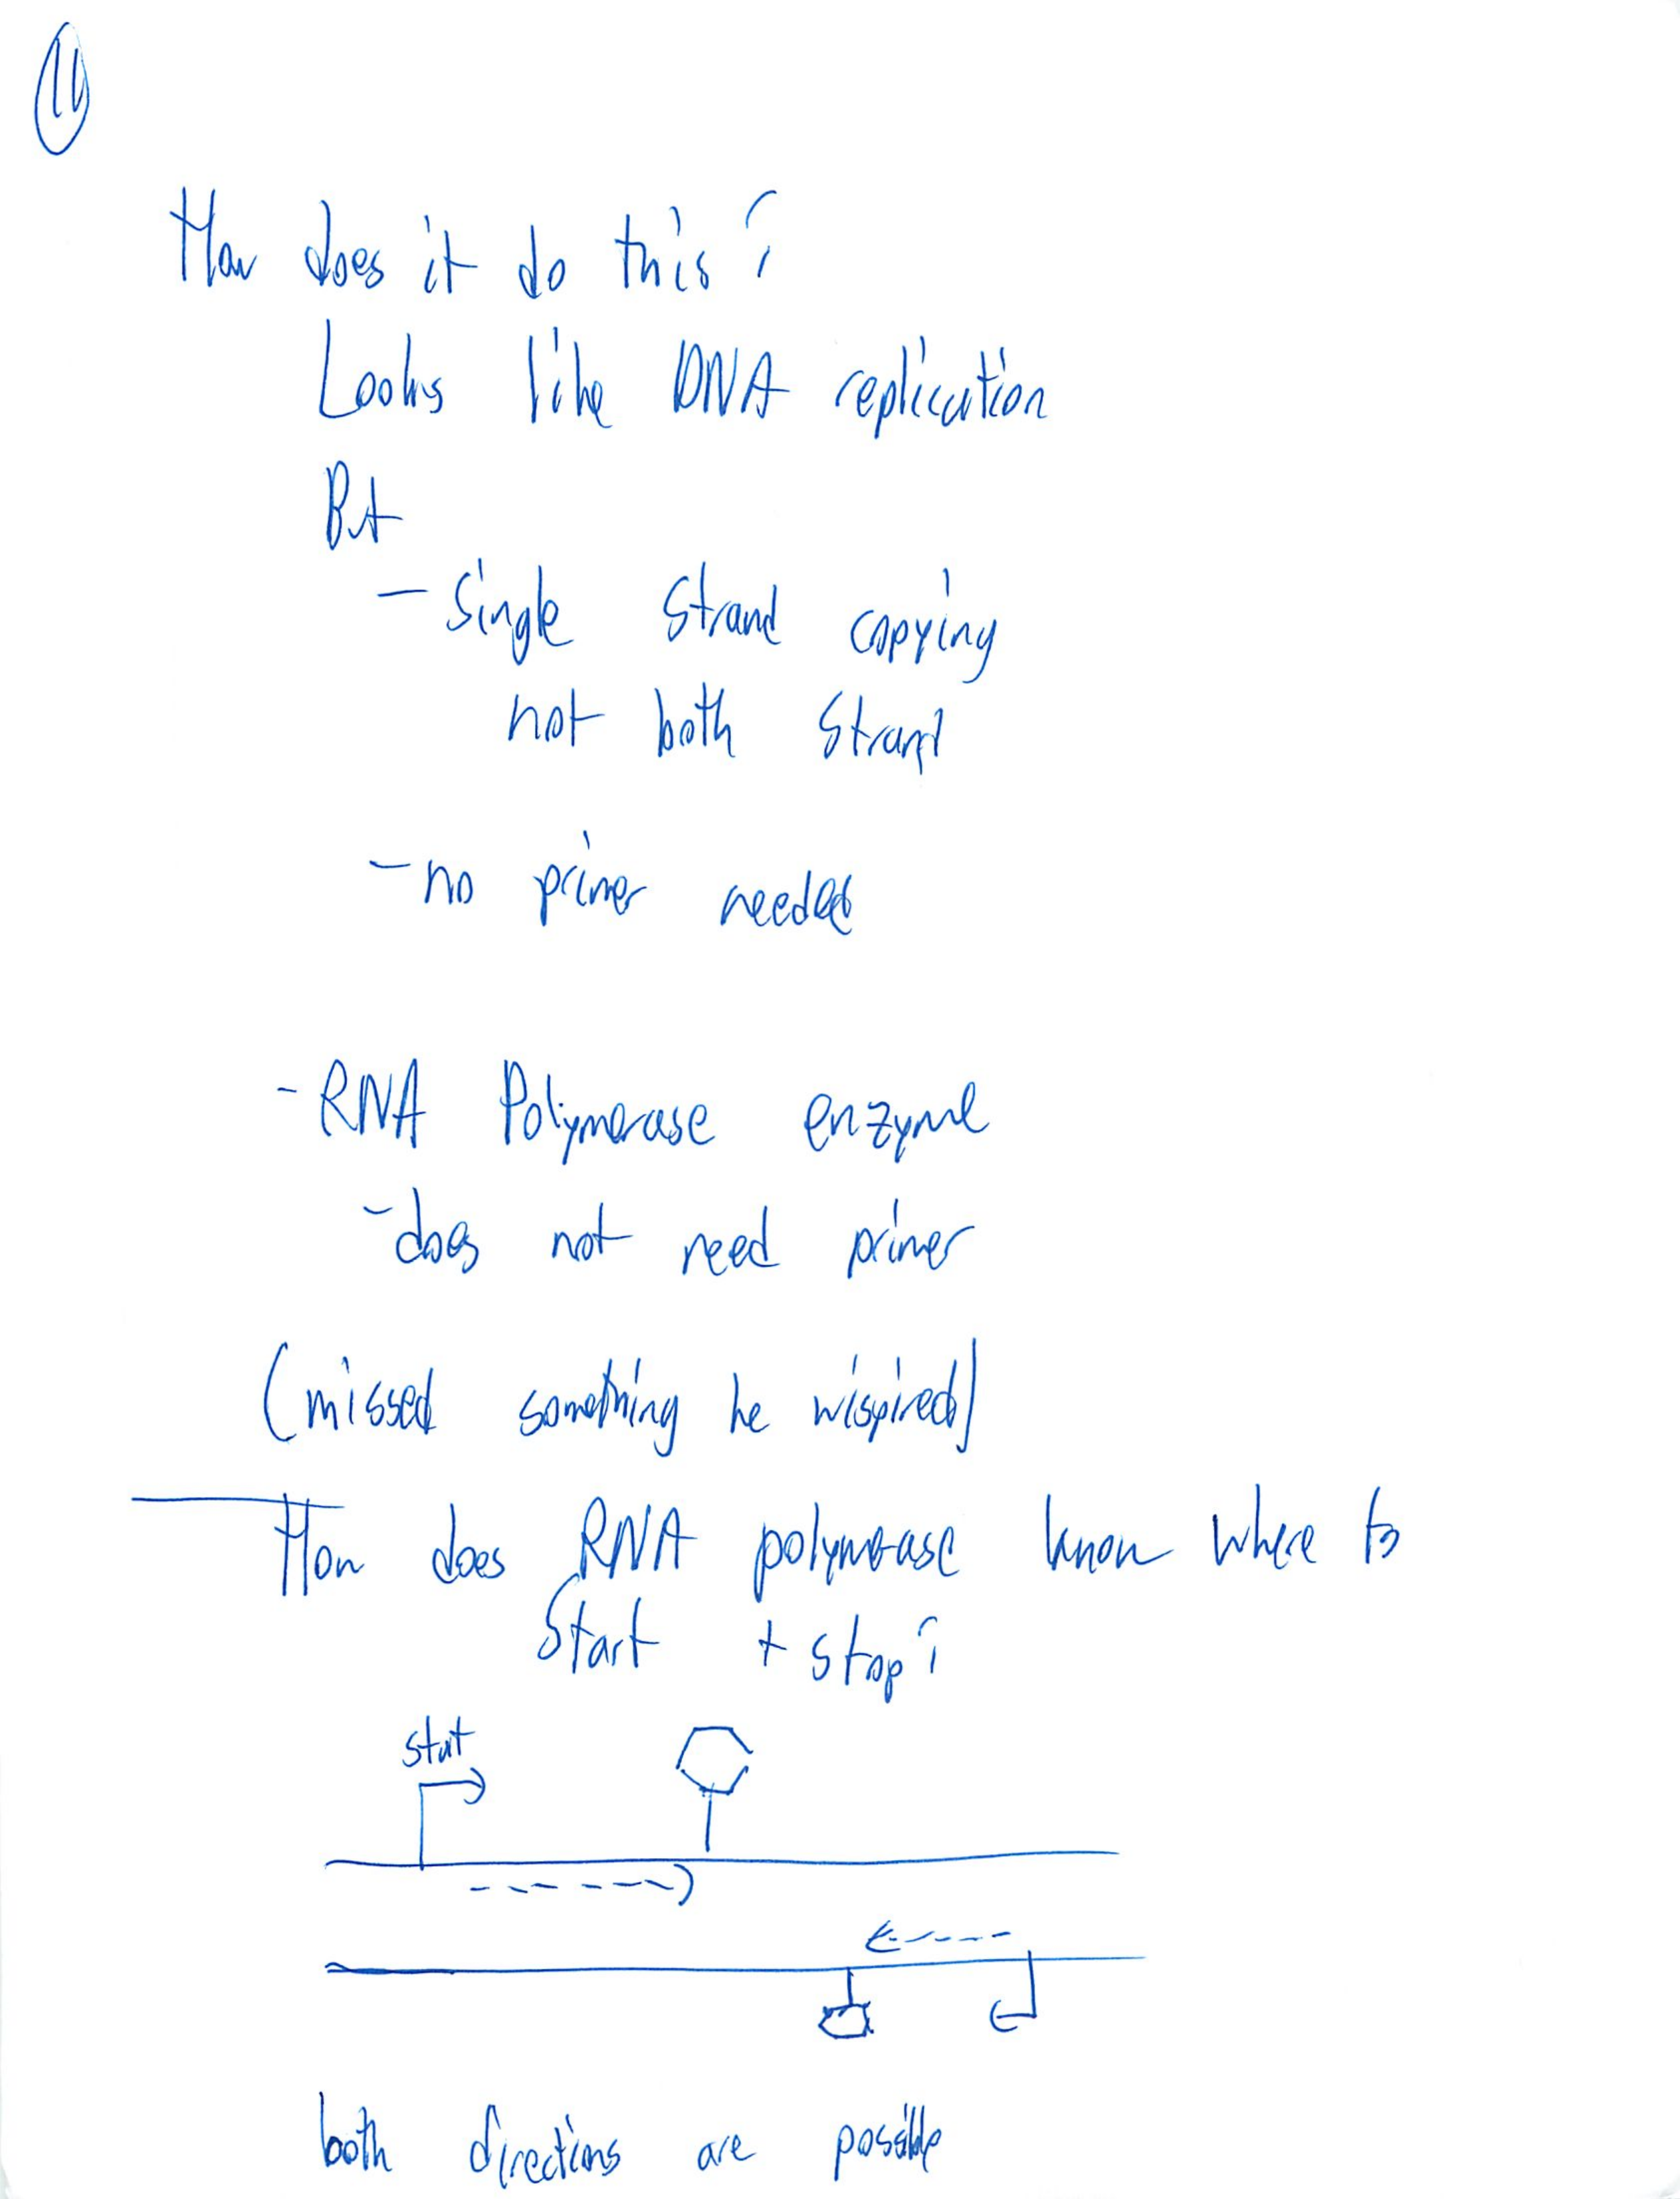 11
How does it do this?
Looks like DNA replication
But
- Single strand copying
not both strand
- no primer needed
- RNA Polymerase enzyme
- does not need primer
(missed something he wispired)
How does RNA polymerase know where to
start + stop?
start
both directions are possible